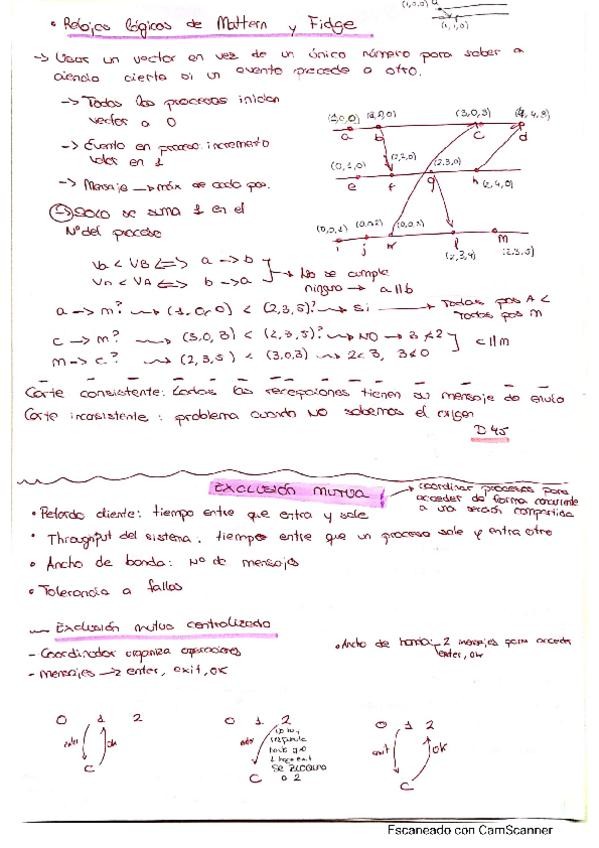 (1,0,0) a
(1,1,0)
• Relojes lógicos de Mattern y Fidge
-> Usar un vector en vez de un único número para saber a
ciencia cierta si un evento precede a otro.
-> Todos los procesos inician
vector a 0
-> Evento en proceso incrementa
valor en 1
-> Mensaje -> máx de cada pos.
-> Solo se suma 1 en el
Nº del proceso
(1,0,0) (2,0,0) (3,0,3) (4,4,3)
a b c d
(0,1,0) (2,2,0) (2,3,0)
e f g h (2,4,0)
(0,0,1) (0,0,2) (0,0,3)
i j k l m
(2,3,4) (2,3,5)
Va < VB <=> a -> b
VB < VA <=> b -> a
No se cumple
ninguno -> a || b
a -> m? (1,0,0) < (2,3,5)? Si -> Todas pos A <
Todas pos M
c -> m? (3,0,3) < (2,3,5)? NO -> 3 ≮ 2
m -> c? (2,3,5) < (3,0,3) 2<3, 3≮0
c || m
Corte consistente: todas las recepciones tienen su mensaje de envío
Corte inconsistente: problema cuando NO sabemos el origen
D 45
EXCLUSIÓN MUTUA
-> coordinar procesos para
acceder de forma concurrente
a una sección compartida
• Retardo cliente: tiempo entre que entra y sale
• Throughput del sistema: tiempo entre que un proceso sale y entra otro
• Ancho de banda: Nº de mensajes
• Tolerancia a fallos
Exclusión mutua centralizado
- Coordinador organiza operaciones
- mensajes -> enter, exit, OK
• Ancho de banda: 2 mensajes para acceder
enter, OK
0 1 2
enter OK
C
0 1 2
enter
no hay
respuesta
hasta q 0
se bloquea
C
0 1 2
exit OK
C
Escaneado con CamScanner